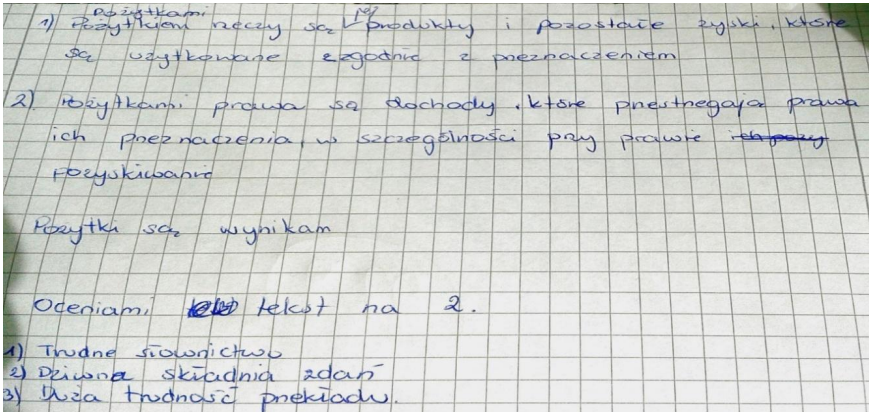 Pożytkami jej
1) Pożytkiem rzeczy są produkty i pozostałe zyski, które
są użytkowane zgodnie z przeznaczeniem
2) Pożytkami prawa są dochody, które przestrzegają prawa
ich przeznaczenia, w szczególności przy prawie
pozyskiwanie
Pożytki są wynikam
Oceniam, tekst na 2.
1) Trudne słownictwo
2) Dziwna składnia zdań
3) Duża trudność przekładu.